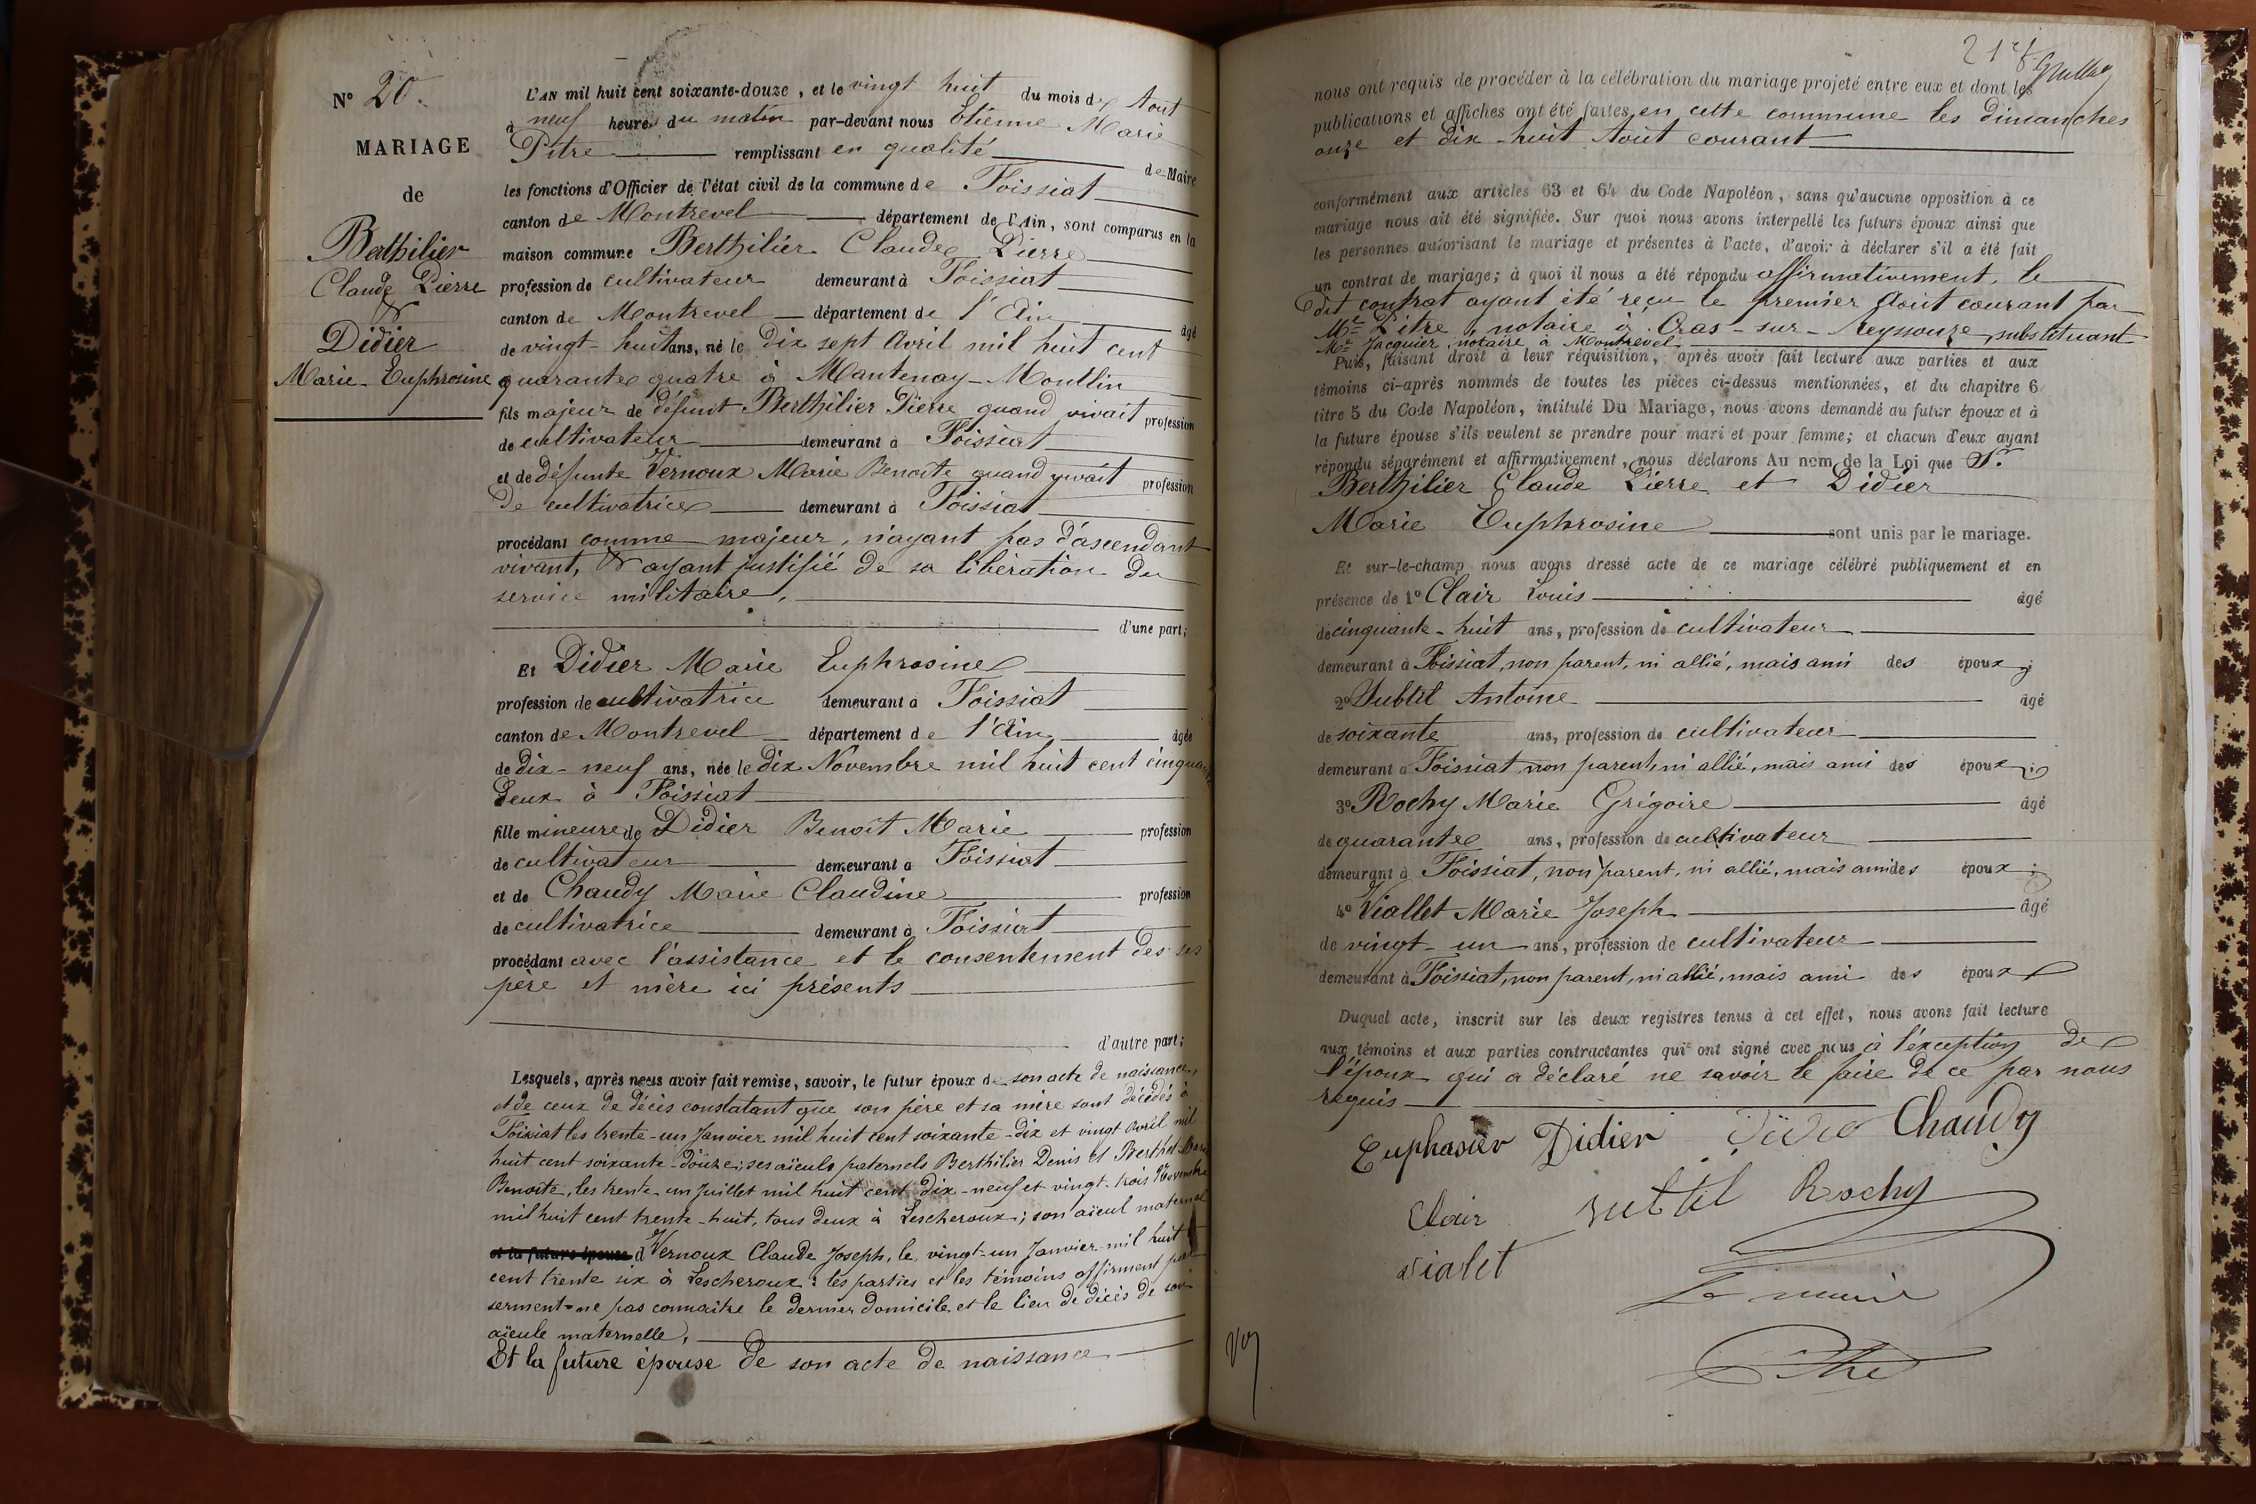 N° 20.
MARIAGE
de
Berthilier
Claude Pierre
&
Didier
Marie-Euphrosine
L'AN mil huit cent soixante-douze, et le vingt huit du mois de Aout
à neuf heures du matin par-devant nous Etienne Marie
Pitre remplissant en qualité de Maire
les fonctions d'Officier de l'état civil de la commune de Foissiat
canton de Montrevel département de l'Ain, sont comparus en la
maison commune Berthilier Claude Pierre
profession de cultivateur demeurant à Foissiat
canton de Montrevel département de l'Ain âgé
de vingt-huit ans, né le dix sept Avril mil huit cent
quarante quatre à Mantenay-Montlin
fils majeur de défunt Berthilier Pierre quand vivait profession
de cultivateur demeurant à Foissiat
et de défunte Vernoux Marie Benoite quand vivait profession
de cultivatrice demeurant à Foissiat
procédant comme majeur, n'ayant pas d'ascendant
vivant, & ayant justifié de sa libération du
service militaire,
d'une part;
Et Didier Marie Euphrosine
profession de cultivatrice demeurant à Foissiat
canton de Montrevel département de l'Ain âgée
de dix-neuf ans, née le dix Novembre mil huit cent cinquante
deux à Foissiat
fille mineure de Didier Benoit Marie profession
de cultivateur demeurant à Foissiat
et de Chaudy Marie Claudine profession
de cultivatrice demeurant à Foissiat
procédant avec l'assistance et le consentement des ses
père et mère ici présents
d'autre part;
Lesquels, après nous avoir fait remise, savoir, le futur époux de son acte de naissance,
et de ceux de décès constatant que son père et sa mère sont décédés à
Foissiat les trente-un Janvier mil huit cent soixante-dix et vingt Avril mil
huit cent soixante-douze; ses aïeuls paternels Berthilier Denis et Berthet Marie
Benoite, les trente-un Juillet mil huit cent dix-neuf et vingt-trois Novembre
mil huit cent trente-huit, tous deux à Lescheroux; son aïeul maternel
et la future épouse d Vernoux Claude Joseph, le vingt-un Janvier mil huit
cent trente six à Lescheroux: les parties et les témoins affirment par
serment ne pas connaitre le dernier domicile et le lieu de décès de son
aïeule maternelle,
Et la future épouse de son acte de naissance
nous ont requis de procéder à la célébration du mariage projeté entre eux et dont les
publications et affiches ont été faites en cette commune les dimanches
onze et dix-huit Août courant
conformément aux articles 63 et 64 du Code Napoléon, sans qu'aucune opposition à ce
mariage nous ait été signifiée. Sur quoi nous avons interpellé les futurs époux ainsi que
les personnes autorisant le mariage et présentes à l'acte, d'avoir à déclarer s'il a été fait
un contrat de mariage; à quoi il nous a été répondu affirmativement, le
dit contrat ayant été reçu le premier Aout courant par
Me Pitre, notaire à Cras-sur-Reyssouze, substituant
Me Jacquier, notaire à Montrevel.
Puis, faisant droit à leur réquisition, après avoir fait lecture aux parties et aux
témoins ci-après nommés de toutes les pièces ci-dessus mentionnées, et du chapitre 6
titre 5 du Code Napoléon, intitulé Du Mariage, nous avons demandé au futur époux et à
la future épouse s'ils veulent se prendre pour mari et pour femme; et chacun d'eux ayant
répondu séparément et affirmativement, nous déclarons Au nom de la Loi que Sr.
Berthilier Claude Pierre et Didier
Marie Euphrosine sont unis par le mariage.
Et sur-le-champ nous avons dressé acte de ce mariage célébré publiquement et en
présence de 1° Clair Louis âgé
de cinquante-huit ans, profession de cultivateur
demeurant à Foissiat, non parent, ni allié, mais ami des époux;
2° Subtil Antoine âgé
de soixante ans, profession de cultivateur
demeurant à Foissiat non parent, ni allié, mais ami des époux;
3° Rochy Marie Grégoire âgé
de quarante ans, profession de cultivateur
demeurant à Foissiat, non parent, ni allié, mais ami des époux;
4° Viallet Marie Joseph âgé
de vingt-un ans, profession de cultivateur
demeurant à Foissiat, non parent, ni allié, mais ami des époux
Duquel acte, inscrit sur les deux registres tenus à cet effet, nous avons fait lecture
aux témoins et aux parties contractantes qui ont signé avec nous à l'exception de
l'époux qui a déclaré ne savoir le faire de ce par nous
requis
Euphasier Didier Didie Chaudy
Clair subtil Rochy
vialet
Le maire
Pitre